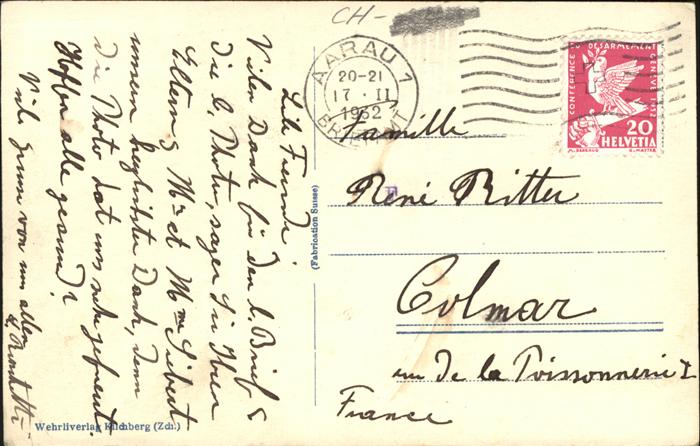 CH-
AARAU 1
20-21
17. II
1932
BRIEFVERSAND
CONFERENCE DU DESARMEMENT GENEVE 1932
20
HELVETIA
Familie
René Ritter
Colmar
rue de la Poissonnerie 1
France
(Fabrication Suisse)
Wehrliverlag Kilchberg (Zch.)
Lib. Freunde!
Vielen Dank für den l. Brief &
die l. Photos, sagen Sie Ihren
Eltern & Mr et Mme Siebert
unsern herzlichsten Dank, denn
die Photo hat uns sehr gefreut.
Hoffen alle gesund?
Viele Grüsse von uns allen